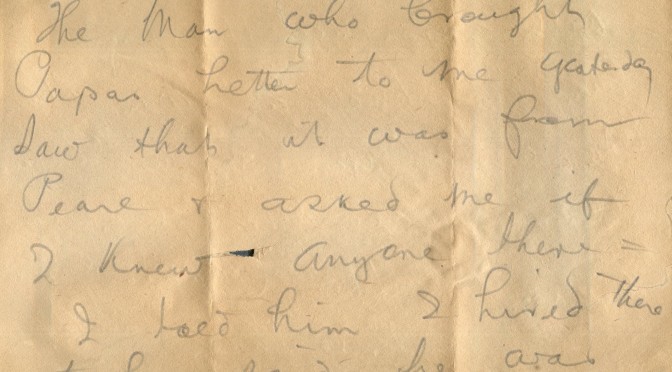 The Man who brought
Papas Letter to me yesterday
Saw that it was from
& asked me if
I knew anyone there =
I told him I lived there
he was